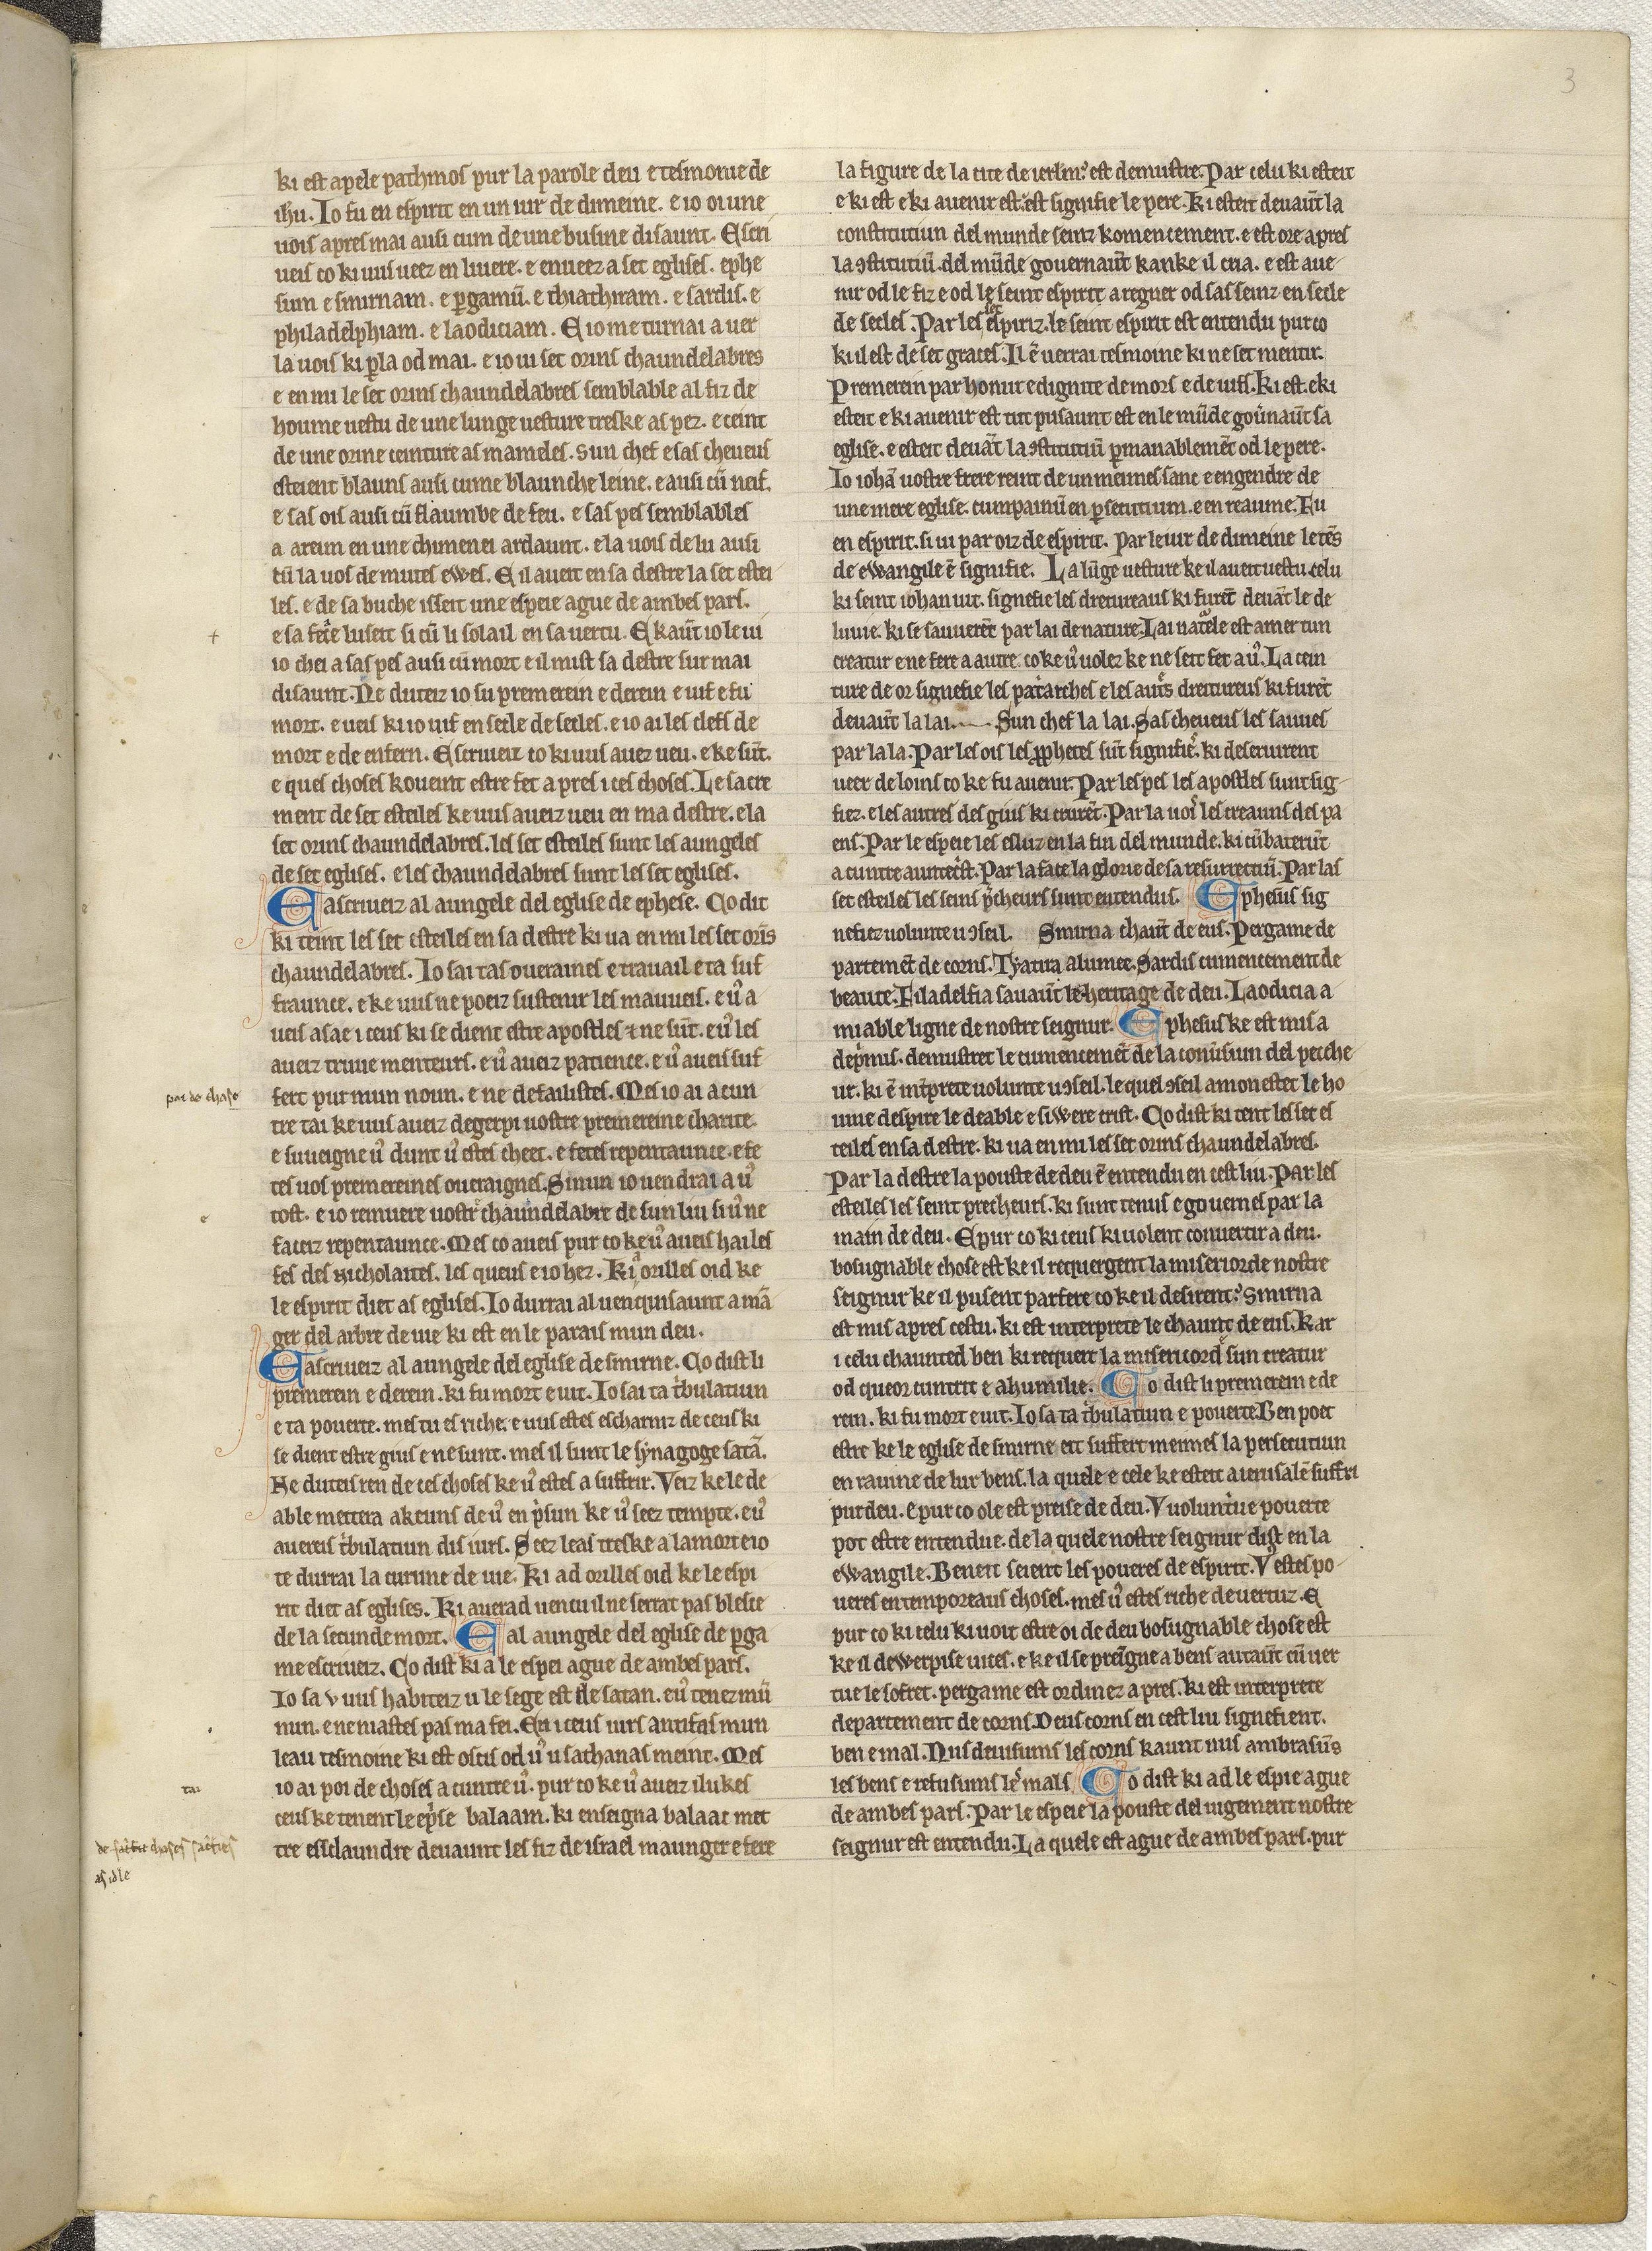 3
ki est apele pathmos pur la parole deu e tesmonie de
ihu. Io fu en espirit en un iur de dimeine. e io oi une
uois apres mai ausi cum de une busine disaunt. Escri
ueis co ki uus ueez en liuere. e enueez a set eglises. ephe
sum e smirnam. e ꝑgamū. e thiathiram. e sardis. e
philadelphiam. e laodiciam. E io me turnai a uer
la uois ki ꝑla od mai. e io ui set orins chaundelabres
e en mi le set orins chaundelabres semblable al fiz de
houme uestu de une lunge uesture treske as pez. e ceint
de une orine ceinture as mameles. sun chef e sas cheueus
esteient blauns ausi cume blaunche leine. e ausi cū neif.
e sas ois ausi cū flaumbe de feu. e sas pes semblables
a areim en une chimenei ardaunt. e la uois de lu ausi
cū la uos de mutes ewes. E il aueit en sa destre la set estei
les. e de sa buche isseit une espeie ague de ambes pars.
e sa face luseit si cū li solail en sa uertu. E kaūt io le ui
io chei a sas pes ausi cū mort e il mist sa destre sur mai
disaunt. Ne duteiz io su premerein e derein e uif e fu
mort. e ueis ki io uif en secle de secles. e io ai les clefs de
mort e de enfern. Escriueiz co ki uus auez ueu. e ke sūt.
e ques choses koueint estre fet apres ices choses. Le sacre
ment de set esteiles ke uus aueiz ueu en ma destre. e la
set orins chaundelabres. les set esteiles sunt les aungeles
de set eglises. e les chaundelabres sunt les set eglises.
E ascriueiz al aungele del eglise de ephese. Co dit
ki teint les set esteiles en sa destre ki ua en mi les set orīs
chaundelabres. Io sai tas oueraines e trauail e ta suf
fraunce. e ke uus ne poeiz sustenir les mauueis. e uͦ a
ueis asae iceus ki se dient estre apostles ⁊ ne sūt. e uͦ les
aueiz truue menteurs. e uͦ aueiz patience. e uͦ aueis suf
fert pur mun noun. e ne defailistes. Mes io ai acun
poi de chose
tre tai ke uus aueiz degerpi uostre premereine charite.
e suueigne uͦ dunt uͦ estes cheet. e fetes repentaunce. e fe
tes uos premereines oueraignes. Sinun io uendrai a uͦ
tost. e io remuere uostre chaundelabre de sun liu si uͦ ne
faceiz repentaunce. Mes co aueis pur co ke uͦ aueis hai les
fes des nicholaites. les queus e io hez. Ki a orilles oid ke
le espirit diet as eglises. Io durrai al uenquisaunt a mā
ger del arbre de uie ki est en le parais mun deu.
E ascriueiz al aungele del eglise de smirne. Co dist li
premerein e derein. ki fu mort e uit. Io sai ta tͥbulatiun
e ta pouerte. mes tu es riche. e uus estes escharniz de ceus ki
se dient estre gius e ne sunt. mes il sunt le synagoge satā.
Ne duteis ren de ces choses ke uͦ estes a suffrir. Veiz ke le de
able mettera akeuns de uͦ en pͥsun ke uͦ seez tempte. e uͦ
auereis tͥbulatiun dis iurs. Seez leas treske a la mort e io
te durrai la curune de uie. Ki ad orilles oid ke le espi
rit diet as eglises. Ki auerad uencu il ne serrat pas blesce
de la secunde mort. E al aungele del eglise de ꝑga
me escriueiz. Co dist ki a le espei ague de ambes pars.
Io sa v uus habiteiz u le sege est de satan. e uͦ tenez mū
nun. e ne niastes pas ma fei. En iceus iurs antifas mun
leau tesmoine ki est oscis od uͦ u sathanas meint. Mes
io ai poi de choses acuntre uͦ. pur co ke uͦ aueiz ilukes
tai
ceus ke tenent le balaam. ki enseigna balaac met
tre esclaundre deuaunt les fiz de israel maunger e fere
de choses
as idle
la figure de la cite de ierlm est demustre. Par celu ki esteit
e ki est e ki auenir est. est signifie le pere. Ki esteit deuaūt la
constitutiun del munde seinz komencement. e est ore apres
la ꝯstitutiū del mūde gouernaūt kanke il cria. e est aue
nir od le fiz e od le seint espirit a regner od sas seinz en secle
de secles. Par les set espiriz. le seint espirit est entendu pur co
ki il est de set graces. Il ē uerrai tesmoine ki ne set mentir.
Premerein par honur e dignite de mors e de uifs. Ki est. e ki
esteit e ki auenir est tut pusaunt est en le mūde gouͦnaūt sa
eglise. e esteit deuāt la ꝯstitutiū ꝑmanablemēt od le pere.
Io iohā uostre frere reint de un meimes sanc e engendre de
une mere eglise. cumpainū en ꝑsecutium. e en reaume. Fu
en espirit. si ui par oiz de espirit. Par le iur de dimeine le tēs
de ewangile ē signifie. La lūge uesture ke il aueit uestu. celu
ki seint iohan uit. signefie les dretureaus ki furēt deuāt le de
luuie. ki se sauuerēt par lai de nature. Lai naturele est amer sun
creatur e ne fere a autre. co ke uͦ uolez ke ne seit fet a uͦ. La cein
ture de or signefie les patͥarches e les autͥs dreitureus ki furēt
deuaūt la lai. Sun chef la lai. Sas cheueus les sauues
par la la. Par les ois les ꝓphetes sūt signifie. ki deseruirent
ueer de loins co ke fu auenir. Par les pes les apostles sunt sig
fiez. e les autres des gius ki crurēt. Par la uois les creauns des pa
ens. Par le espeie les esluz en la fin del munde. ki cūbaterūt
acuntre auntecͥst. Par la face la glorie de sa resurrectiū. Par las
set esteiles les seins pͥcheurs sunt entendus. Ephesus sig
nefiez uolunte u ꝯseil. Smirna chaūt de eus. Pergame de
partemēt de corns. Tyatira alumee. Sardis cumencement de
beaute. Filadelfia sauaūt le heritage de deu. Laodicia a
miable ligne de nostre seignur. Ephesus ke est mis a
depͥmus. demustret le cumencemēt de la conuͥsiun del pecche
ur. ki ē intͥprete uolunte u ꝯseil. le quel ꝯseil amonestet le ho
ume despire le deable e siwere crist. Co dist ki tent les set es
teiles en sa destre. ki ua en mi les set orins chaundelabres.
Par la destre la pouste de deu ē entendu en cest liu. Par les
esteiles les seint precheurs. ki sunt tenus e gouernes par la
main de deu. E pur co ki ceus ki uolent conuertir a deu.
bosugnable chose est ke il requergent la misericorde nostre
seignur ke il pusent parfere co ke il desirent. Smirna
est mis apres cestu. ki est interprete le chaunt de eus. Kar
icelu chaunted ben ki requert la misericord sun creatur
od queor cuntrit e ahumilie. Co dist li premerein e de
rein. ki fu mort e uit. Io sa ta tͥbulatiun e pouerte. Ben poet
estre ke le eglise de smirne eit suffert meimes la persecutiun
en rauine de lur bens. la quele e cele ke esteit a ierusalē suffri
pur deu. e pur co ole est preise de deu. V uoluntͥue pouerte
pot estre entendue. de la quele nostre seignur dist en la
ewangile. Beneit seient les poueres de espirit. Vͦ estes po
ueres en temporeaus choses. mes uͦ estes riche de uertuz. E
pur co ki celu ki uoit estre oi de deu bosugnable chose est
ke il dewerpise uices. e ke il se preīgne a bens autaūt cū uer
tue le sofret. pergame est ordinez apres. ki est interprete
departement de corns. Deus corns en cest liu signefient.
ben e mal. Nus deuisums les corns kaunt nus ambrasūs
les bens e refusums les mals. Co dist ki ad le espie ague
de ambes pars. Par le espeie la pouste del iugement nostre
seignur est entendu. La quele est ague de ambes pars. pur